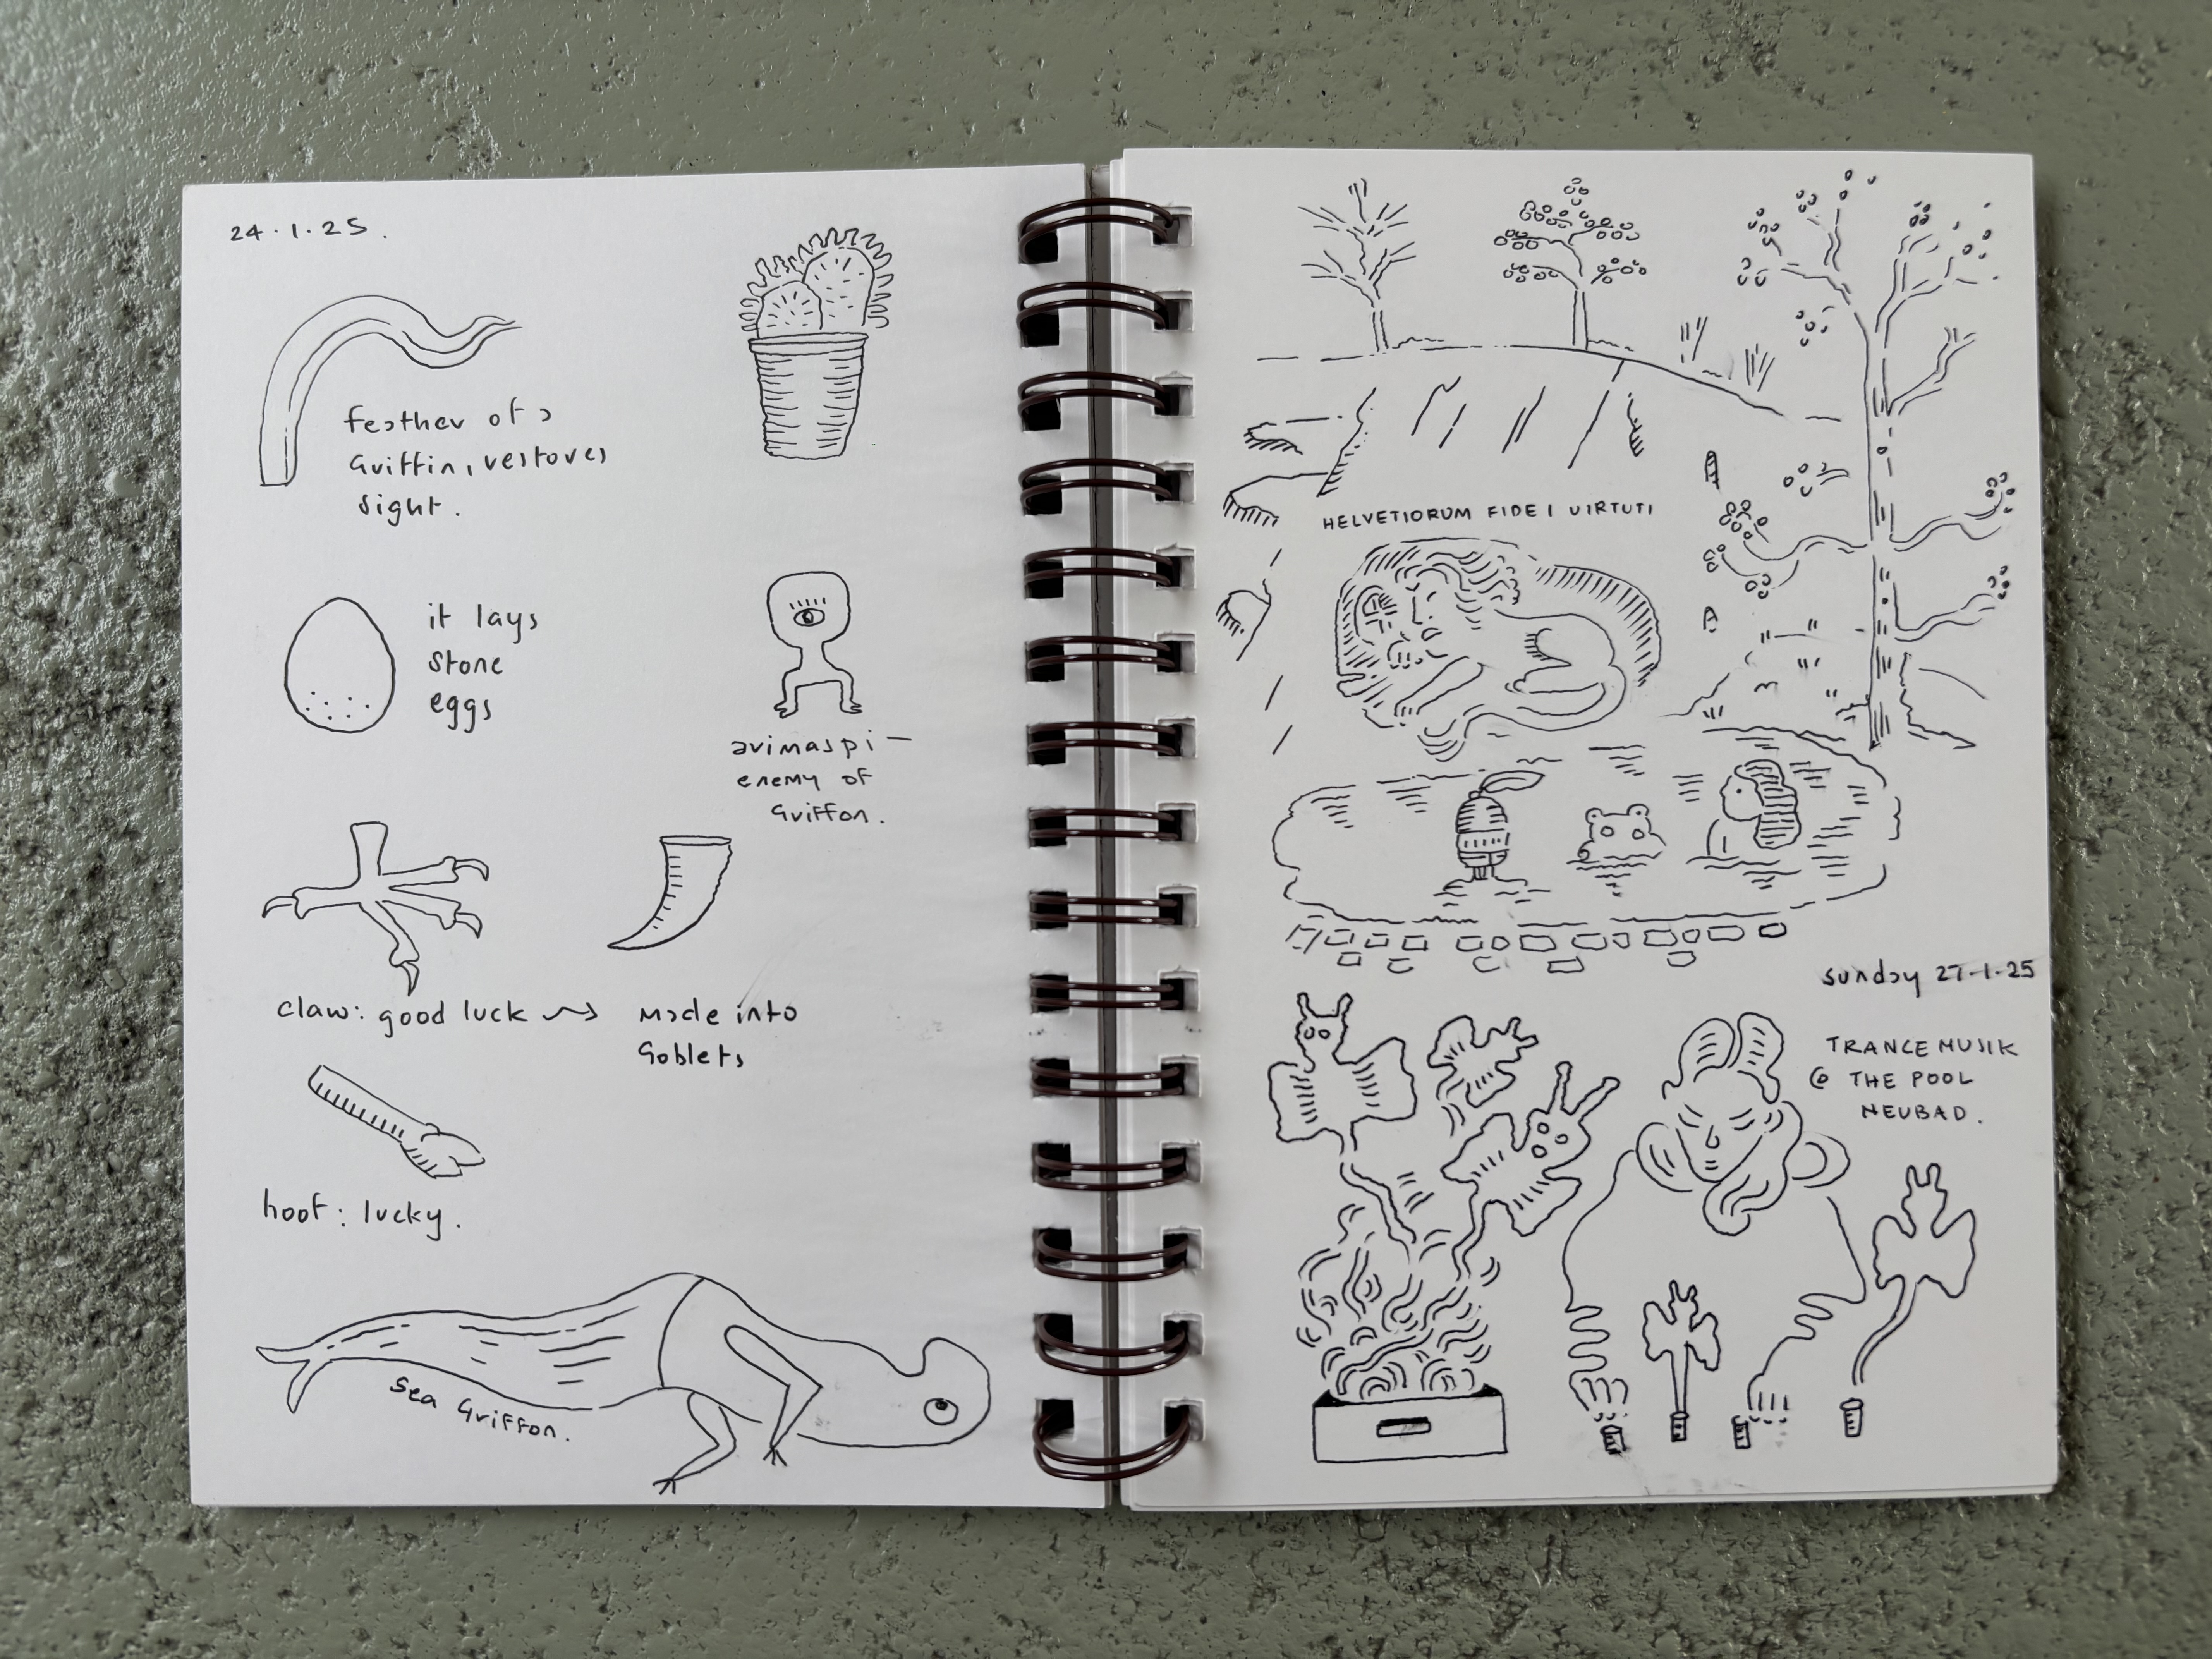 24.1.25.
feather of a
Griffin, restores
sight.
it lays
stone
eggs
arimaspi -
enemy of
Griffon.
claw: good luck → made into
Goblets
hoof: lucky.
sea Griffon.
HELVETIORUM FIDEI VIRTUTI
sunday 27.1.25
TRANCE MUSIK
@ THE POOL
NEUBAD.